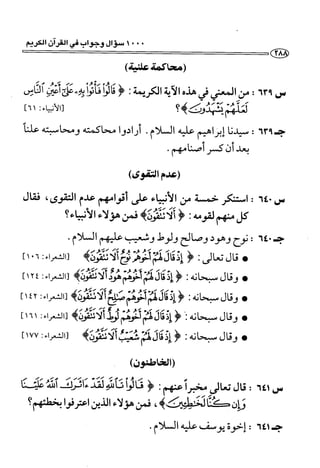 ١٠٠٠ سؤال وجواب في القرآن الكريم
٢٨٨
(محاكمة علنية)
س ٦٣٩ : من المعني في هذه الآية الكريمة : ﴿ قَالُوا فَأْتُوا بِهِ عَلَىٰ أَعْيُنِ النَّاسِ
لَعَلَّهُمْ يَشْهَدُونَ ﴾؟ [الأنبياء: ٦١]
جـ ٦٣٩ : سيدنا إبراهيم عليه السلام . أرادوا محاكمته ومحاسبته علناً
بعد أن كسر أصنامهم .
(عدم التقوى)
س ٦٤٠ : استنكر خمسة من الأنبياء على أقوامهم عدم التقوى ، فقال
كل منهم لقومه : ﴿ أَلَا تَتَّقُونَ ﴾ فمن هؤلاء الأنبياء؟
جـ ٦٤٠ : نوح وهود وصالح ولوط وشعيب عليهم السلام .
• قال تعالى : ﴿ إِذْ قَالَ لَهُمْ أَخُوهُمْ نُوحٌ أَلَا تَتَّقُونَ ﴾ [الشعراء: ١٠٦]
• وقال سبحانه : ﴿ إِذْ قَالَ لَهُمْ أَخُوهُمْ هُودٌ أَلَا تَتَّقُونَ ﴾ [الشعراء: ١٢٤]
• وقال سبحانه : ﴿ إِذْ قَالَ لَهُمْ أَخُوهُمْ صَالِحٌ أَلَا تَتَّقُونَ ﴾ [الشعراء: ١٤٢]
• وقال سبحانه : ﴿ إِذْ قَالَ لَهُمْ أَخُوهُمْ لُوطٌ أَلَا تَتَّقُونَ ﴾ [الشعراء: ١٦١]
• وقال سبحانه : ﴿ إِذْ قَالَ لَهُمْ شُعَيْبٌ أَلَا تَتَّقُونَ ﴾ [الشعراء: ١٧٧]
(الخاطئون)
س ٦٤١ : قال تعالى مخبراً عنهم : ﴿ قَالُوا تَاللَّهِ لَقَدْ آثَرَكَ اللَّهُ عَلَيْنَا
وَإِن كُنَّا لَخَاطِئِينَ ﴾ ، فمن هؤلاء الذين اعترفوا بخطئهم؟
جـ ٦٤١ : إخوة يوسف عليه السلام .